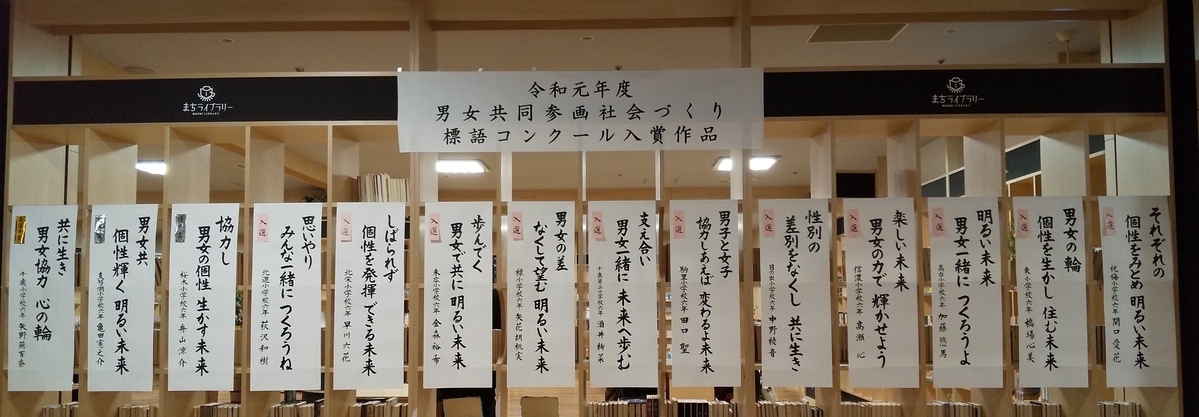 令和元年度
男女共同参画社会づくり
標語コンクール入賞作品
まちライブラリー
MACHI LIBRARY
まちライブラリー
MACHI LIBRARY
それぞれの
個性をみとめ 明るい未来
祝梅小学校六年 関口 愛花
男女の輪
個性を生かし 住む未来
入選
東小学校六年 橋場 心美
明るい未来
男女一緒に つくろうよ
入選
高台小学校六年 加藤 悠馬
楽しい未来
男女の力で 輝かせよう
入選
信濃小学校六年 高瀬 心
性別の
差別をなくし 共に生き
入選
日の出小学校六年 中野 綾音
男子と女子
協力しあえば 変わるよ未来
入選
駒里小学校六年 田口 聖
支え合い
男女一緒に 未来へ歩む
入選
千歳第二小学校六年 酒井
男女の差
なくして望む 明るい未来
入選
緑小学校六年 矢花 胡桃実
歩んでく
男女で共に 明るい未来
入選
末広小学校六年 金森 裕布
しばられず
個性を発揮 できる未来
入選
北栄小学校六年 早川 六花
思いやり
みんな一緒に つくろうね
入選
北陽小学校六年 荻沢 和樹
協力し
男女の個性 生かす未来
桜木小学校六年 舟山 涼介
男女共
個性輝く 明るい未来
支笏湖小学校六年 亀田 憲之介
共に生き
男女協力 心の輪
千歳小学校六年 矢野 萌百奈